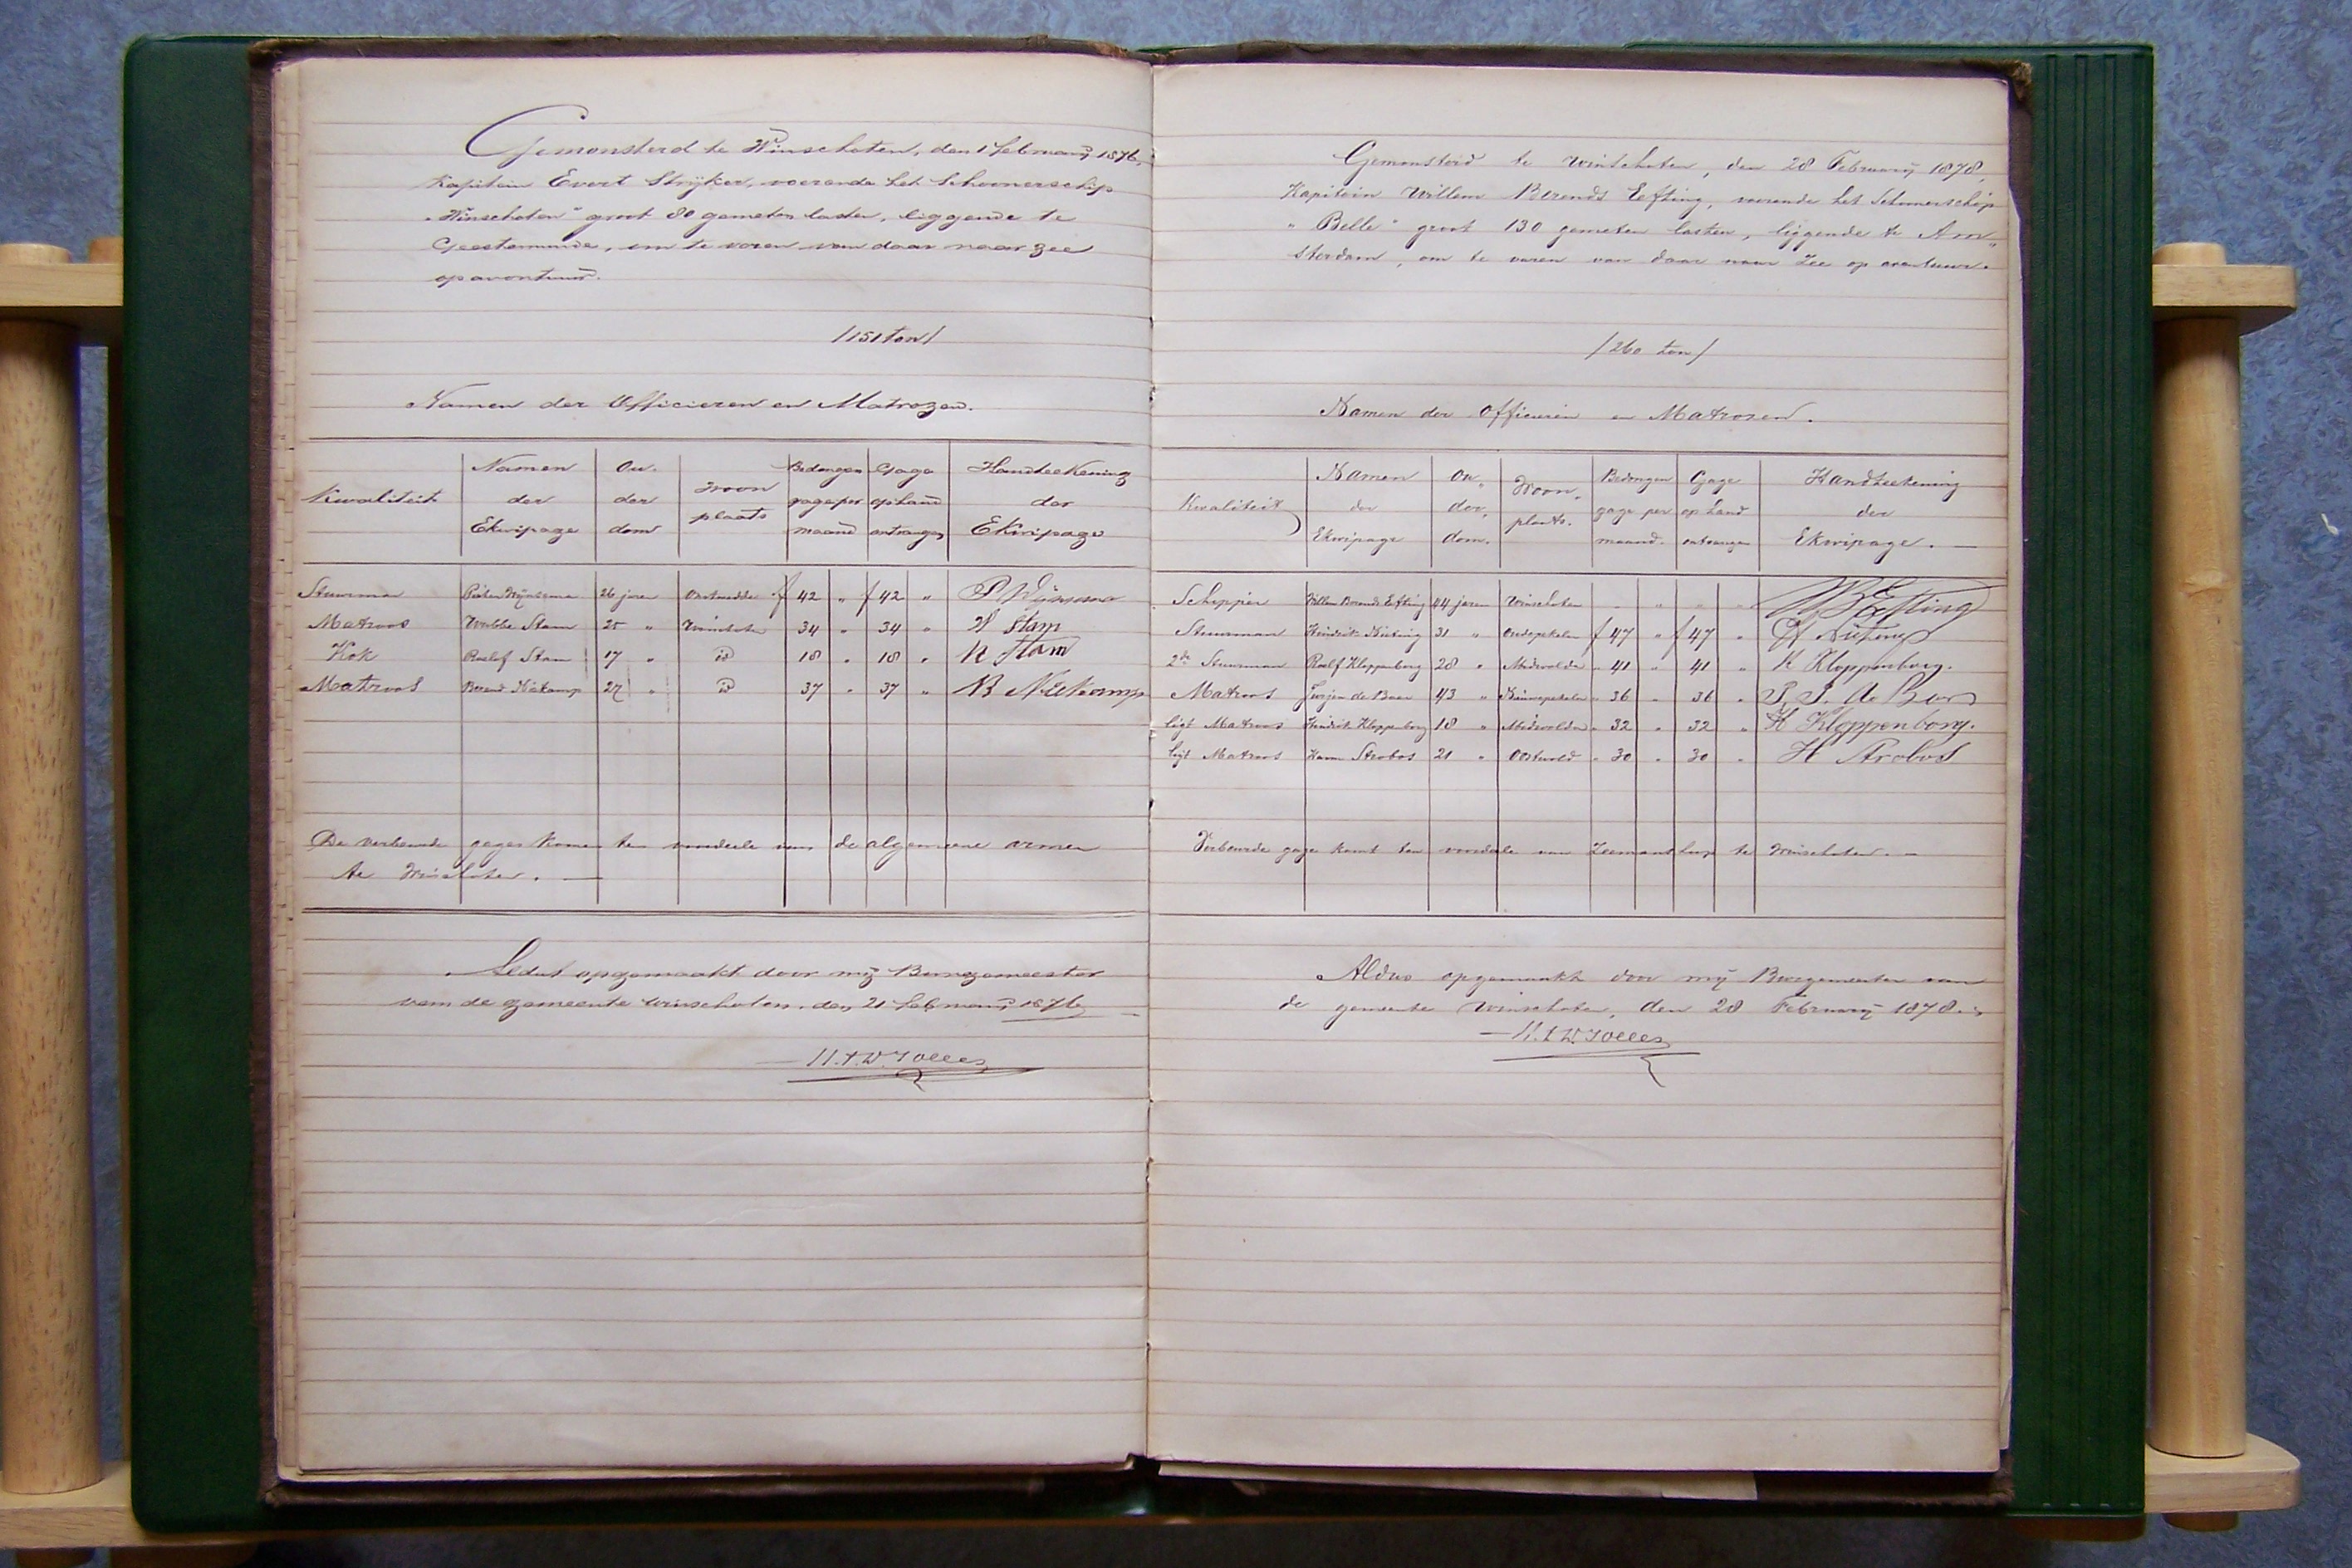 Gemonsterd te Winschoten, den 1 februarij 1876,
Kapitein Evert Strijker, voerende het Schoonerschip
„Winschoten" groot 80 gemeten lasten, liggende te
Geestemunde, om te varen van daar naar zee
op avontuur.
/151 ton/
Namen der Officieren en Matrozen.
Kwaliteit Namen der Ekwipage Ou- der dom Woon plaats Bedongen gage per maand Gage op hand ontvangen Handteekening der Ekwipage
Stuurman Pieter 26 jaren f 42 " f 42 "
Matroos Wubbe Stam 25 " Winschoten 34 " 34 " W Stam
Kok Roelof Stam 17 " id 18 " 18 " R Stam
Matroos Berend Niekamp 27 " id 37 " 37 " B Niekamp
De verbeurde gages komen ten voordeele van de algemeene armen
te Winschoten. —
Aldus opgemaakt door mij Burgemeester
van de gemeente Winschoten, den 21 februarij 1876
Gemonsterd te Winschoten, den 28 Februarij 1878,
Kapitein Willem Berends Eefting, voerende het Schoonerschip
„Belle" groot 130 gemeten lasten, liggende te Am„
sterdam, om te varen van daar naar Zee op avontuur.
/260 ton/
Namen der Officieren en Matrozen.
Kwaliteit Namen der Ekwipage Ou„ der„ dom. Woon„ plaats. Bedongen gage per maand. Gage op hand ontvangen Handteekening der Ekwipage. —
Schipper Willem Berends Eefting 44 jaren Winschoten " " " " WB Eefting
Stuurman Hindrik 31 " Oudepekela f 47 " f 47 "
2de Stuurman Roelf Kloppenborg 28 " Midwolda " 41 " 41 " R Kloppenborg.
Matroos Jurjen de Boer 43 " Nieuwepekela " 36 " 36 " J. J. de Boer
ligt Matroos Hindrik Kloppenborg 18 " Midwolda " 32 " 32 " H Kloppenborg.
ligt Matroos Harm Strobos 21 " Oostwold " 30 " 30 " H Strobos
Verbeurde gage komt ten voordeele van Zeemans hoop te Winschoten. —
Aldus opgemaakt door mij Burgemeester van
de gemeente Winschoten, den 28 Februarij 1878.